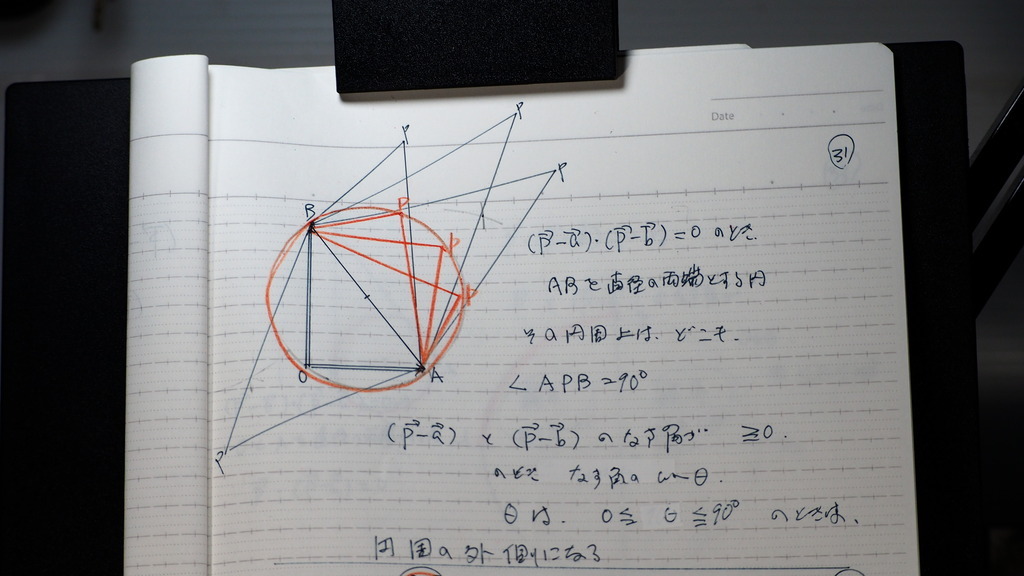 Date
31
P
P
P
B
P
P
P
O
A
P
(p⃗-a⃗)・(p⃗-b⃗)=0 のとき
ABを直径の両端とする円
その円周上は、どこも、
∠APB=90°
(p⃗-a⃗) と (p⃗-b⃗) のなす角が ≧0.
のとき なす角の cosθ.
θは、 0≦ θ ≦90° のときは、
円周の外側になる